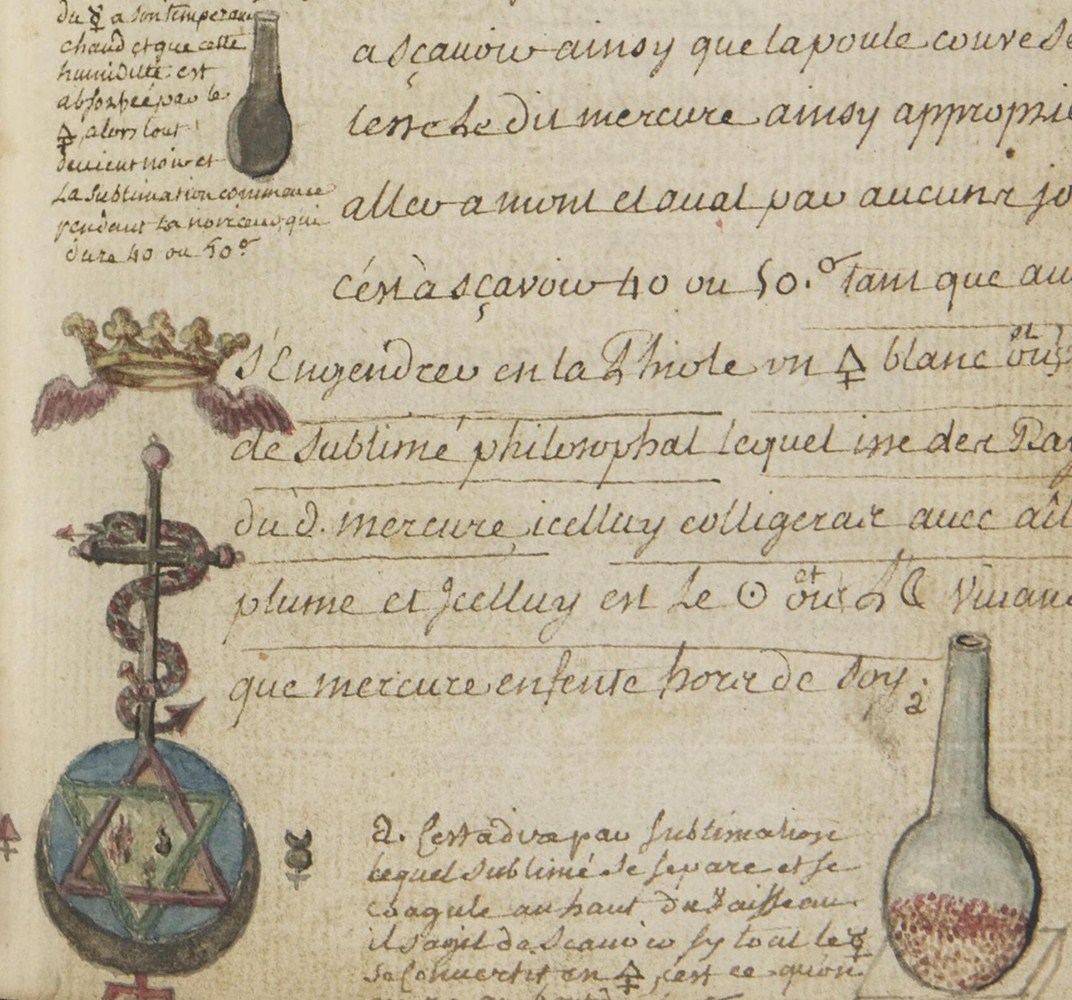 du ☿ a son temperam
chaud et que cette
humidité est
absorbée par le
🜍 alors tout
devient noir et
La sublimation commence
pendant la noirceur qui
dure 40 ou 50.
a sçavoir ainsy que la poule couve se
le dit mercure ainsy approprié
aller a mont et aval par aucuns jo
c'est à sçavoir 40 ou 50. tant que au
s'Engendrer en la Phiole un 🜍 blanc et
de sublimé philosophal lequel isse des
du d. mercure icelluy colligeras avec
plume et Jcelluy est Le ☉ et Vivan
que mercure enfente hors de soy. 2
2. C'est a dire par sublimation
lequel sublimé se separe et se
coagule au haut du Vaisseau
il s'agit de Scavoir sy tout le ☿
se Convertit en 🜍, c'est ce qu'on